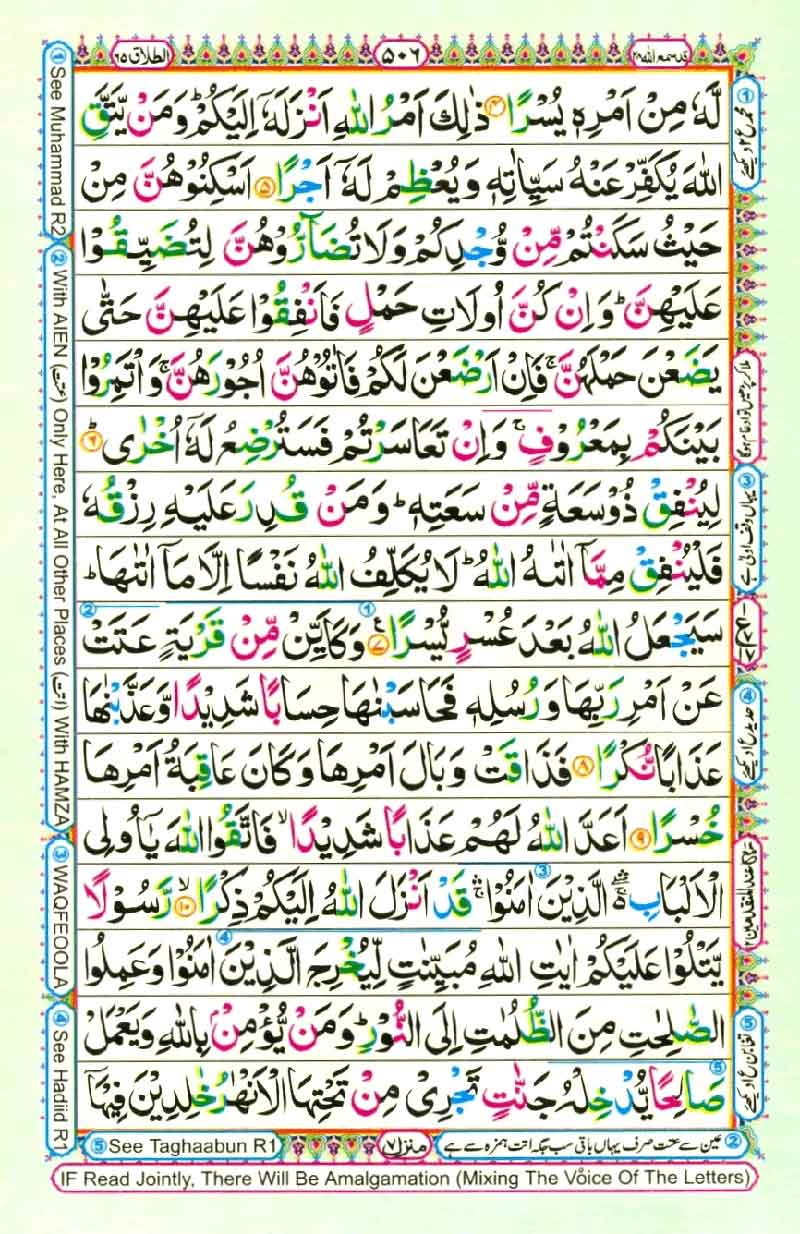 قد سمع الله ٢٨
٥٠٦
الطلاق ٦٥
لَّهٗ مِنْ اَمْرِهٖ يُسْرًا ۴ ذٰلِكَ اَمْرُ اللّٰهِ اَنْزَلَهٗۤ اِلَيْكُمْ ؕ وَمَنْ يَّتَّقِ
اللّٰهَ يُكَفِّرْ عَنْهُ سَيِّاٰتِهٖ وَيُعْظِمْ لَهٗۤ اَجْرًا ۵ اَسْكِنُوْهُنَّ مِنْ
حَيْثُ سَكَنْتُمْ مِّنْ وُّجْدِكُمْ وَلَا تُضَآرُّوْهُنَّ لِتُضَيِّقُوْا
عَلَيْهِنَّ ؕ وَاِنْ كُنَّ اُولَاتِ حَمْلٍ فَاَنْفِقُوْا عَلَيْهِنَّ حَتّٰى
يَضَعْنَ حَمْلَهُنَّ ۚ فَاِنْ اَرْضَعْنَ لَكُمْ فَاٰتُوْهُنَّ اُجُوْرَهُنَّ ۚ وَاْتَمِرُوْا
بَيْنَكُمْ بِمَعْرُوْفٍ ۚ وَاِنْ تَعَاسَرْتُمْ فَسَتُرْضِعُ لَهٗۤ اُخْرٰى ؕ ۶
لِيُنْفِقْ ذُوْ سَعَةٍ مِّنْ سَعَتِهٖ ؕ وَمَنْ قُدِرَ عَلَيْهِ رِزْقُهٗ
فَلْيُنْفِقْ مِمَّاۤ اٰتٰىهُ اللّٰهُ ؕ لَا يُكَلِّفُ اللّٰهُ نَفْسًا اِلَّا مَاۤ اٰتٰىهَا ؕ
سَيَجْعَلُ اللّٰهُ بَعْدَ عُسْرٍ يُّسْرًا ۷ وَكَاَيِّنْ مِّنْ قَرْيَةٍ عَتَتْ
عَنْ اَمْرِ رَبِّهَا وَرُسُلِهٖ فَحَاسَبْنٰهَا حِسَابًا شَدِيْدًا وَّعَذَّبْنٰهَا
عَذَابًا نُّكْرًا ۸ فَذَاقَتْ وَبَالَ اَمْرِهَا وَكَانَ عَاقِبَةُ اَمْرِهَا
خُسْرًا ۹ اَعَدَّ اللّٰهُ لَهُمْ عَذَابًا شَدِيْدًا ۙ فَاتَّقُوا اللّٰهَ يٰۤاُولِى
الْاَلْبَابِ ۛۚ الَّذِيْنَ اٰمَنُوْا ۛۚ قَدْ اَنْزَلَ اللّٰهُ اِلَيْكُمْ ذِكْرًا ۙ ۱۰ رَّسُوْلًا
يَّتْلُوْا عَلَيْكُمْ اٰيٰتِ اللّٰهِ مُبَيِّنٰتٍ لِّيُخْرِجَ الَّذِيْنَ اٰمَنُوْا وَعَمِلُوا
الصّٰلِحٰتِ مِنَ الظُّلُمٰتِ اِلَى النُّوْرِ ؕ وَمَنْ يُّؤْمِنْۢ بِاللّٰهِ وَيَعْمَلْ
صَالِحًا يُّدْخِلْهُ جَنّٰتٍ تَجْرِىْ مِنْ تَحْتِهَا الْاَنْهٰرُ خٰلِدِيْنَ فِيْهَاۤ
① See Muhammad R2
② With AIEN (عتت) Only Here, At All Other Places (اءتت) With HAMZA
③ WAQFEOOLA
④ See Hadiid R1
② عین سے عتت صرف یہاں باقی سب جگہ اءتت ہمزہ سے ہے
منزل ٧
⑤ See Taghaabun R1
IF Read Jointly, There Will Be Amalgamation (Mixing The Voice Of The Letters)